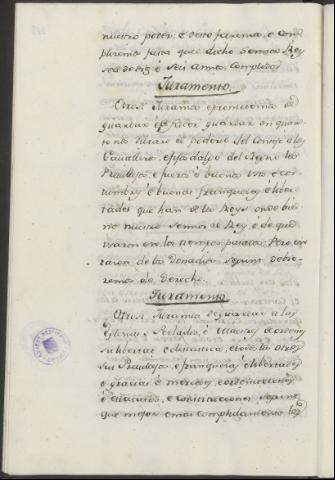 nuestro poder: è desto faremos, è com-
pliremos fasta quel dicho Señor Rey
sea de diez è seis annos complidos
Juramento.
Otrosi Juramos è prometemos de
guardar è facer guardar en quan-
to nos durare el poderio del Consejo à los
Cavalleros, è fijosdalgo del Regno los
Privillejos, è fueros è buenos usos, è cos-
tumbres è buenas franquezas è liber-
tades que han de los Reyes onde bi-
no nuestro Señor el Rey, è de que
usaron en los tiempos pasados. Pero en
razon de las donadios segunt debie-
remos de derecho.
Juramento.
Otrosi Juramos de guardar à las
Iglesias è Perlados, è Maestres, è ordenes
su libertat eclesiastica, è todos los otros
sus Privillejos, è franquezas è libertades
è gracias è mercedes, è ordinaciones
è estatutos, è constituciones segunt
que mejor è mas complidamente los